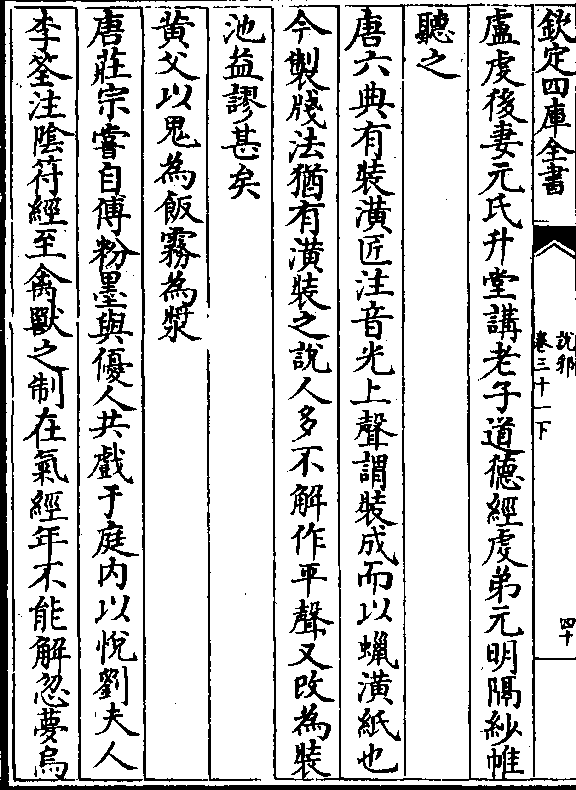 欽定四庫全書
說郛
卷三十一下
四十
盧虔後妻元氏升堂講老子道德經虔弟元明隔紗帷
聽之
唐六典有裝潢匠注音光上聲謂裝成而以蠟潢紙也
今製牋法猶有潢裝之說人多不解作平聲又改為裝
池益謬甚矣
黄父以鬼為飯霧為漿
唐莊宗嘗自傅粉墨與優人共戲于庭内以悅劉夫人
李筌注陰符經至禽獸之制在氣經年不能解忽夢烏